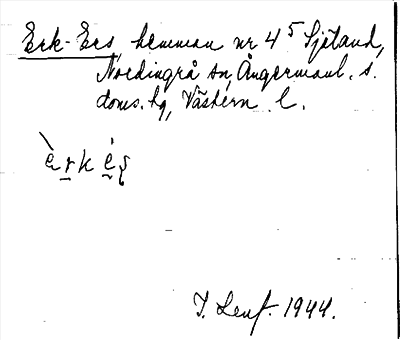 Erk-Ers, hemman nr 4⁵ Sjöland,
Nordingrå sn, Ångermanl. s.
doms. hg, Västern. l.
è r k é
J. Lenf. 1944.